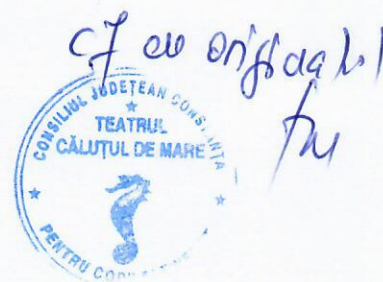 cf cu originalul
CONSILIUL JUDEȚEAN CONSTANȚA
TEATRUL
CĂLUȚUL DE MARE
PENTRU